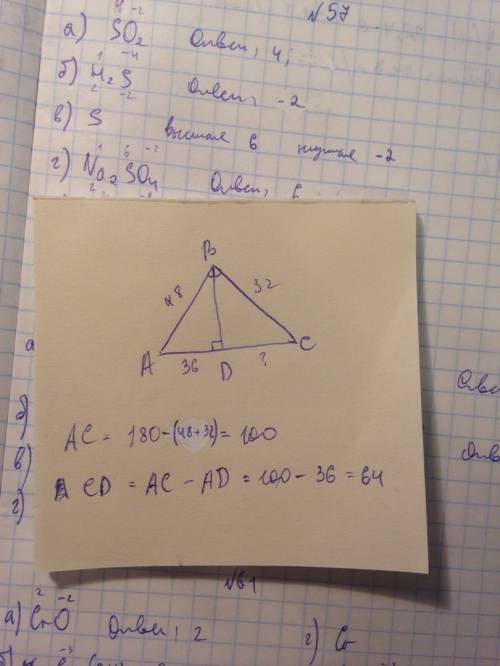 №57
4 -2
а) SO₂ Ответ: 4;
б) H₂S Ответ: -2
в) S высшая 6 низшая -2
1 6 -2
г) Na₂SO₄ Ответ:
B
48 32
A 36 D ? C
AC = 180-(48+32)= 100
CD = AC - AD = 100 - 36 = 64
а
б)
в)
г)
№61
2 -2
а) CrO Ответ: 2 г) Cr